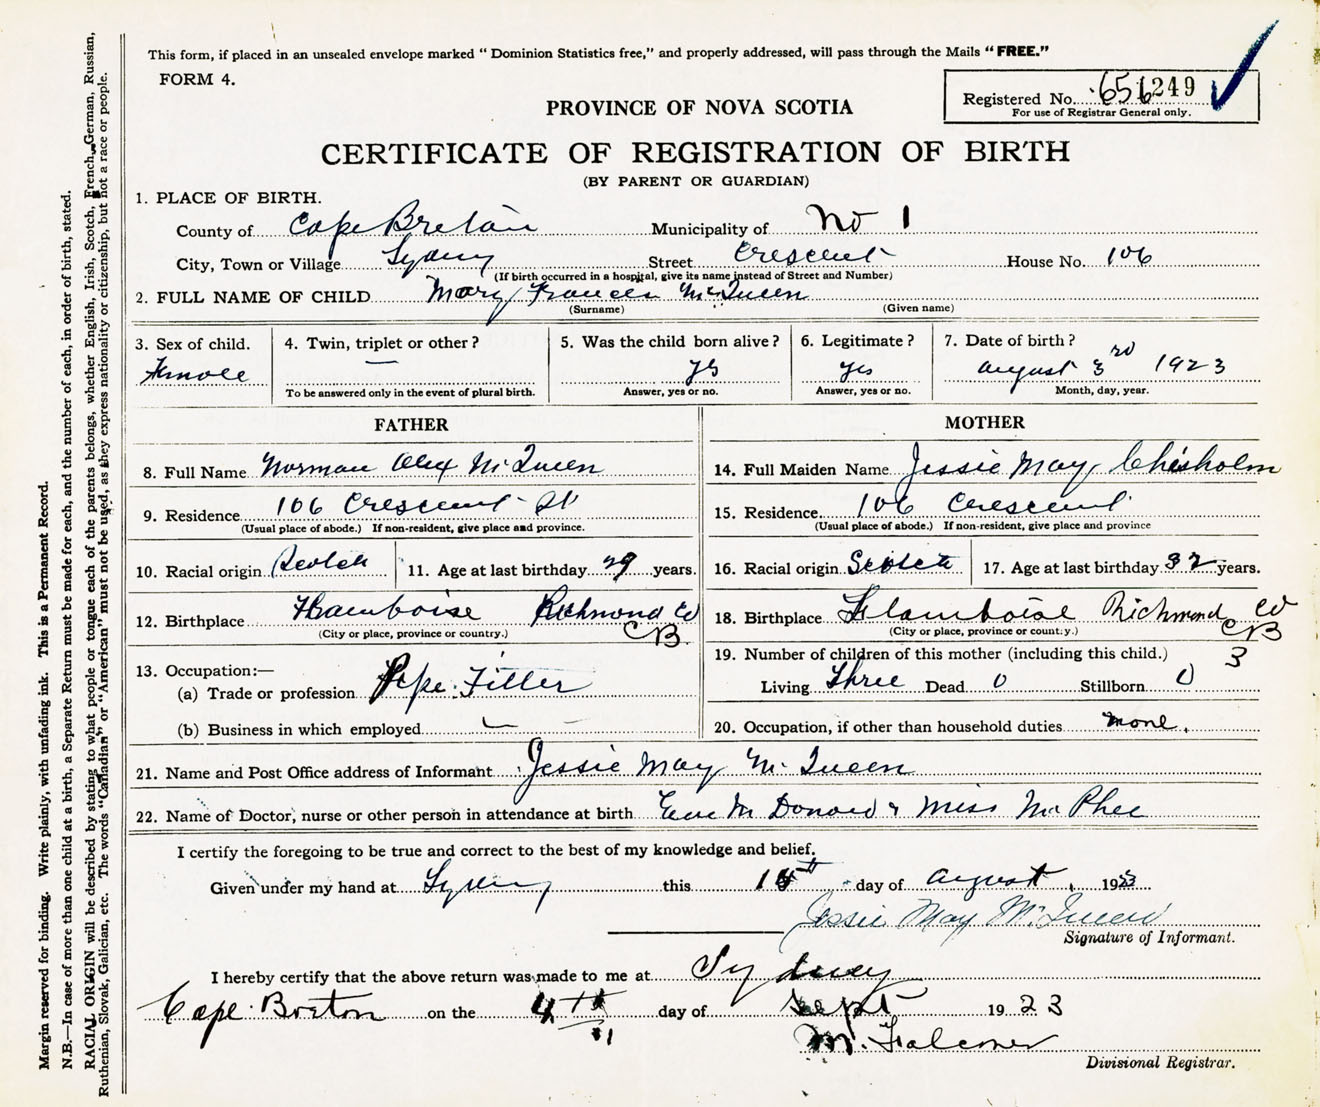 This form, if placed in an unsealed envelope marked “ Dominion Statistics free,” and properly addressed, will pass through the Mails “ FREE.”
FORM 4.
Registered No. 651249
For use of Registrar General only.
PROVINCE OF NOVA SCOTIA
CERTIFICATE OF REGISTRATION OF BIRTH
(BY PARENT OR GUARDIAN)
1. PLACE OF BIRTH.
County of Cape Breton Municipality of No 1
City, Town or Village Sydney Street Crescent House No. 106
(If birth occurred in a hospital, give its name instead of Street and Number)
2. FULL NAME OF CHILD Mary Frances McQueen
(Surname) (Given name)
3. Sex of child. 4. Twin, triplet or other? 5. Was the child born alive? 6. Legitimate? 7. Date of birth?
Female — yes yes August 3rd 1923
To be answered only in the event of plural birth. Answer, yes or no. Answer, yes or no. Month, day, year.
FATHER
8. Full Name Norman Alex McQueen
9. Residence 106 Crescent St
(Usual place of abode.) If non-resident, give place and province.
10. Racial origin Scotch 11. Age at last birthday 29 years.
12. Birthplace Framboise Richmond Co CB.
(City or place, province or country.)
13. Occupation:—
(a) Trade or profession Pipe Fitter
(b) Business in which employed —
MOTHER
14. Full Maiden Name Jessie May Chisholm
15. Residence 106 Crescent
(Usual place of abode.) If non-resident, give place and province
16. Racial origin Scotch 17. Age at last birthday 32 years.
18. Birthplace Framboise Richmond Co CB
(City or place, province or country.)
19. Number of children of this mother (including this child.) 3
Living Three Dead 0 Stillborn 0
20. Occupation, if other than household duties none.
21. Name and Post Office address of Informant Jessie May McQueen
22. Name of Doctor, nurse or other person in attendance at birth McDonald & Miss McPhee
I certify the foregoing to be true and correct to the best of my knowledge and belief.
Given under my hand at Sydney this 15th day of August 1923
Jessie May McQueen
Signature of Informant.
I hereby certify that the above return was made to me at Sydney
Cape Breton on the 4th day of Sept 1923
M. Falconer
Divisional Registrar.
Margin reserved for binding. Write plainly, with unfading ink. This is a Permanent Record.
N.B.—In case of more than one child at a birth, a Separate Return must be made for each, and the number of each, in order of birth, stated.
RACIAL ORIGIN will be described by stating to what people or tongue each of the parents belongs, whether English, Irish, Scotch, French, German, Russian,
Ruthenian, Slovak, Galician, etc. The words “Canadian” or “American” must not be used, as they express nationality or citizenship, but not a race or people.